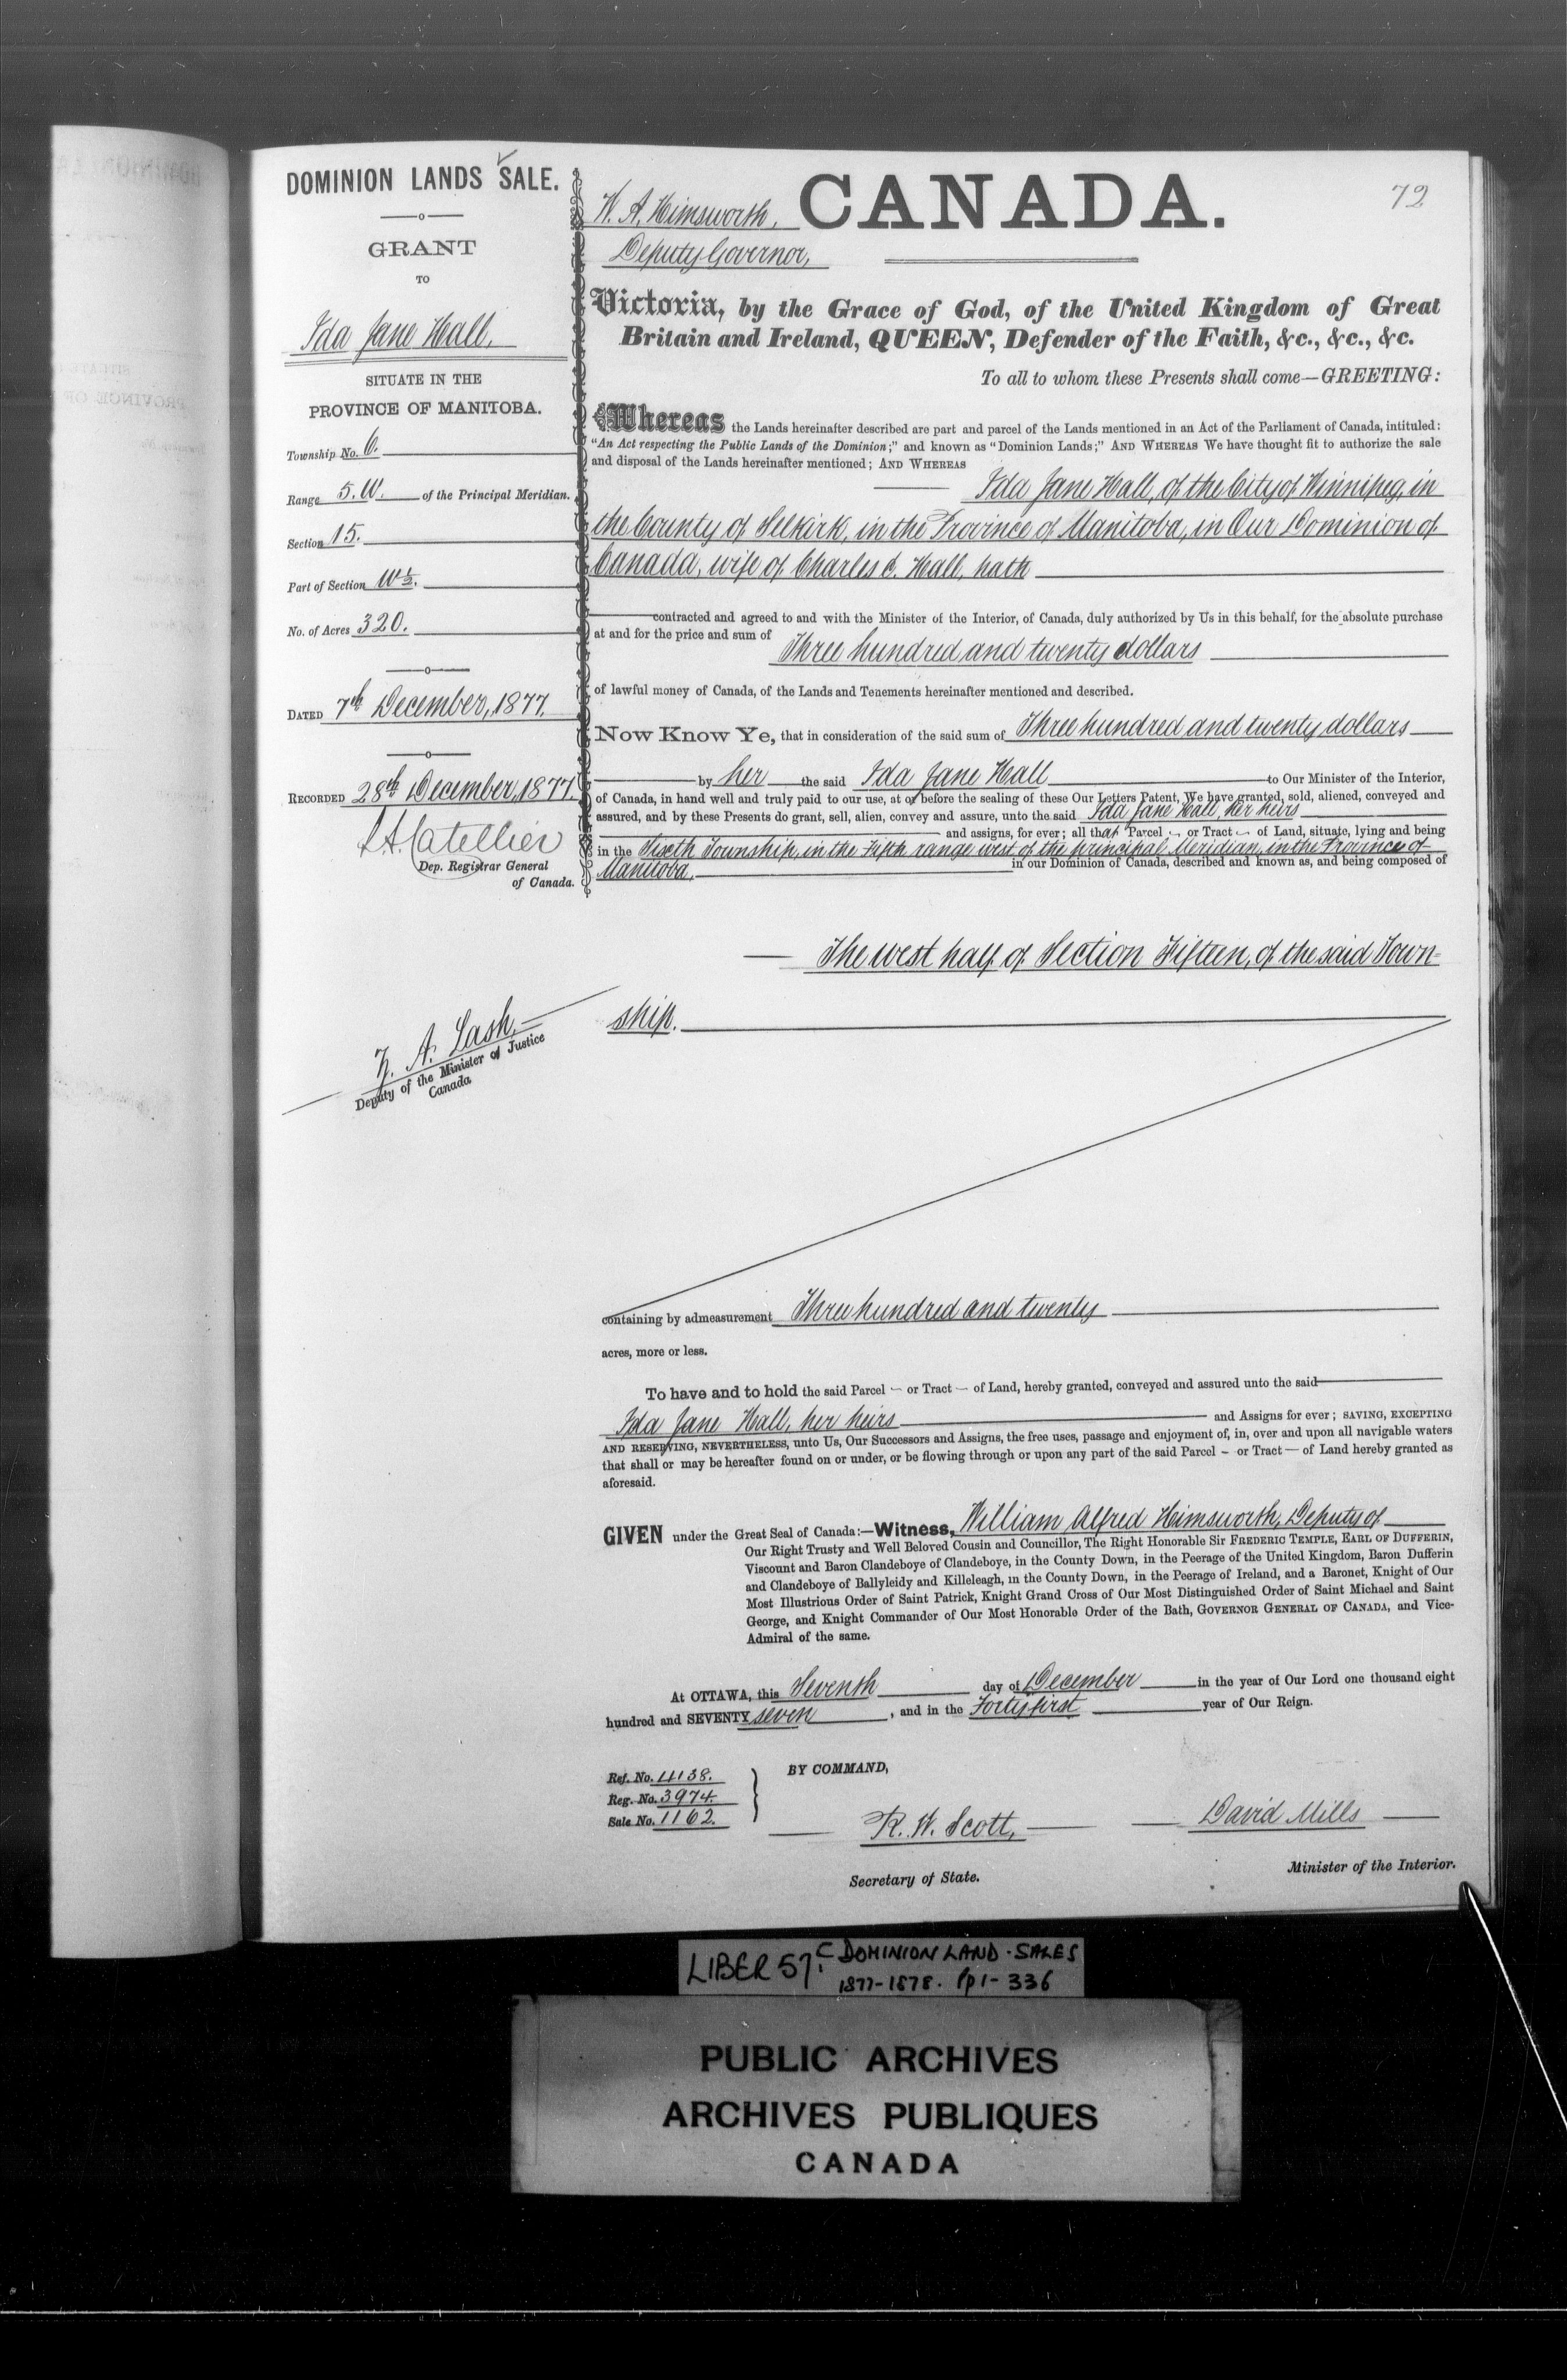 72
DOMINION LANDS SALE.
GRANT
TO
Ida Jane Hall,
SITUATE IN THE
PROVINCE OF MANITOBA.
Township No. 6.
Range 5. W. of the Principal Meridian.
Section 15.
Part of Section W½.
No. of Acres 320.
DATED 7th December, 1877.
RECORDED 28th December, 1877.
L.A. Catellier
Dep. Registrar General
of Canada.
Z. A. Lash,
Deputy of the Minister of Justice
Canada
W. A. Himsworth,
Deputy Governor,
CANADA.
Victoria, by the Grace of God, of the United Kingdom of Great
Britain and Ireland, QUEEN, Defender of the Faith, &c., &c., &c.
To all to whom these Presents shall come—GREETING:
Whereas the Lands hereinafter described are part and parcel of the Lands mentioned in an Act of the Parliament of Canada, intituled:
"An Act respecting the Public Lands of the Dominion;" and known as "Dominion Lands;" AND WHEREAS We have thought fit to authorize the sale
and disposal of the Lands hereinafter mentioned; AND WHEREAS
Ida Jane Hall, of the City of Winnipeg, in
the County of Selkirk, in the Province of Manitoba, in Our Dominion of
Canada, wife of Charles C. Hall, hath
contracted and agreed to and with the Minister of the Interior, of Canada, duly authorized by Us in this behalf, for the absolute purchase
at and for the price and sum of
Three hundred and twenty dollars
of lawful money of Canada, of the Lands and Tenements hereinafter mentioned and described.
Now Know Ye, that in consideration of the said sum of Three hundred and twenty dollars
by her the said Ida Jane Hall to Our Minister of the Interior,
of Canada, in hand well and truly paid to our use, at or before the sealing of these Our Letters Patent, We have granted, sold, aliened, conveyed and
assured, and by these Presents do grant, sell, alien, convey and assure, unto the said Ida Jane Hall, her heirs
and assigns, for ever; all that Parcel – or Tract – of Land, situate, lying and being
in the Sixth Township, in the Fifth range west of the principal Meridian, in the Province of
Manitoba, in our Dominion of Canada, described and known as, and being composed of
— The west half of Section Fifteen, of the said Town-
ship.
containing by admeasurement Three hundred and twenty
acres, more or less.
To have and to hold the said Parcel – or Tract – of Land, hereby granted, conveyed and assured unto the said
Ida Jane Hall, her heirs and Assigns for ever; SAVING, EXCEPTING
AND RESERVING, NEVERTHELESS, unto Us, Our Successors and Assigns, the free uses, passage and enjoyment of, in, over and upon all navigable waters
that shall or may be hereafter found on or under, or be flowing through or upon any part of the said Parcel – or Tract – of Land hereby granted as
aforesaid.
GIVEN under the Great Seal of Canada:—Witness, William Alfred Himsworth, Deputy of
Our Right Trusty and Well Beloved Cousin and Councillor, The Right Honorable Sir FREDERIC TEMPLE, EARL OF DUFFERIN,
Viscount and Baron Clandeboye of Clandeboye, in the County Down, in the Peerage of the United Kingdom, Baron Dufferin
and Clandeboye of Ballyleidy and Killeleagh, in the County Down, in the Peerage of Ireland, and a Baronet, Knight of Our
Most Illustrious Order of Saint Patrick, Knight Grand Cross of Our Most Distinguished Order of Saint Michael and Saint
George, and Knight Commander of Our Most Honorable Order of the Bath, GOVERNOR GENERAL OF CANADA, and Vice-
Admiral of the same.
At OTTAWA, this Seventh day of December in the year of Our Lord one thousand eight
hundred and SEVENTY seven, and in the Forty first year of Our Reign.
BY COMMAND,
Ref. No. 11138.
Reg. No. 3974.
Sale No. 1162.
R. W. Scott,
Secretary of State.
David Mills
Minister of the Interior.
LIBER 57C. DOMINION LAND · SALES
1877-1878. pp 1-336
PUBLIC ARCHIVES
ARCHIVES PUBLIQUES
CANADA